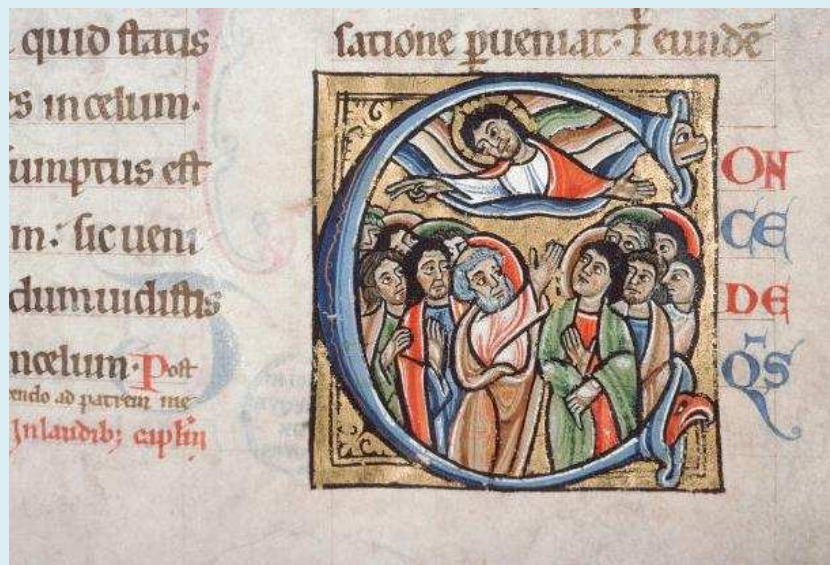 quid statis
es incelum.
sumptus est
m. sic ueni
dumuidistis
ncelum. Post
endo ad patrem me
In laudib; capłm
satione pueniat. eiuidē
C
ON
CE
DE
QS